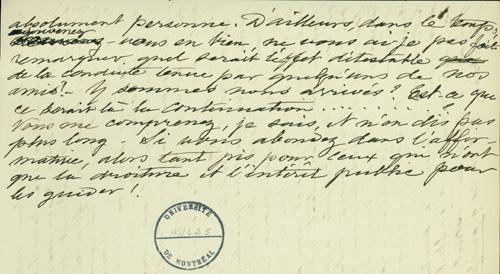 absolument personne. D'ailleurs, dans le temps,
souvenez-vous en bien, ne vous ai je pas fait
remarquer quel serait l'effet détestable
de la conduite tenue par quelqu'uns de nos
amis! Y sommes nous arrivés? Est-ce que
ce serait là la continuation.....?
Vous me comprenez, je sais, et n'en dis pas
plus long. Si vous abondez dans l'affir-
mative, alors tant pis pour ceux qui n'ont
que la droiture et l'intérêt public pour
les guider!
UNIVERSITÉ
DE MONTRÉAL